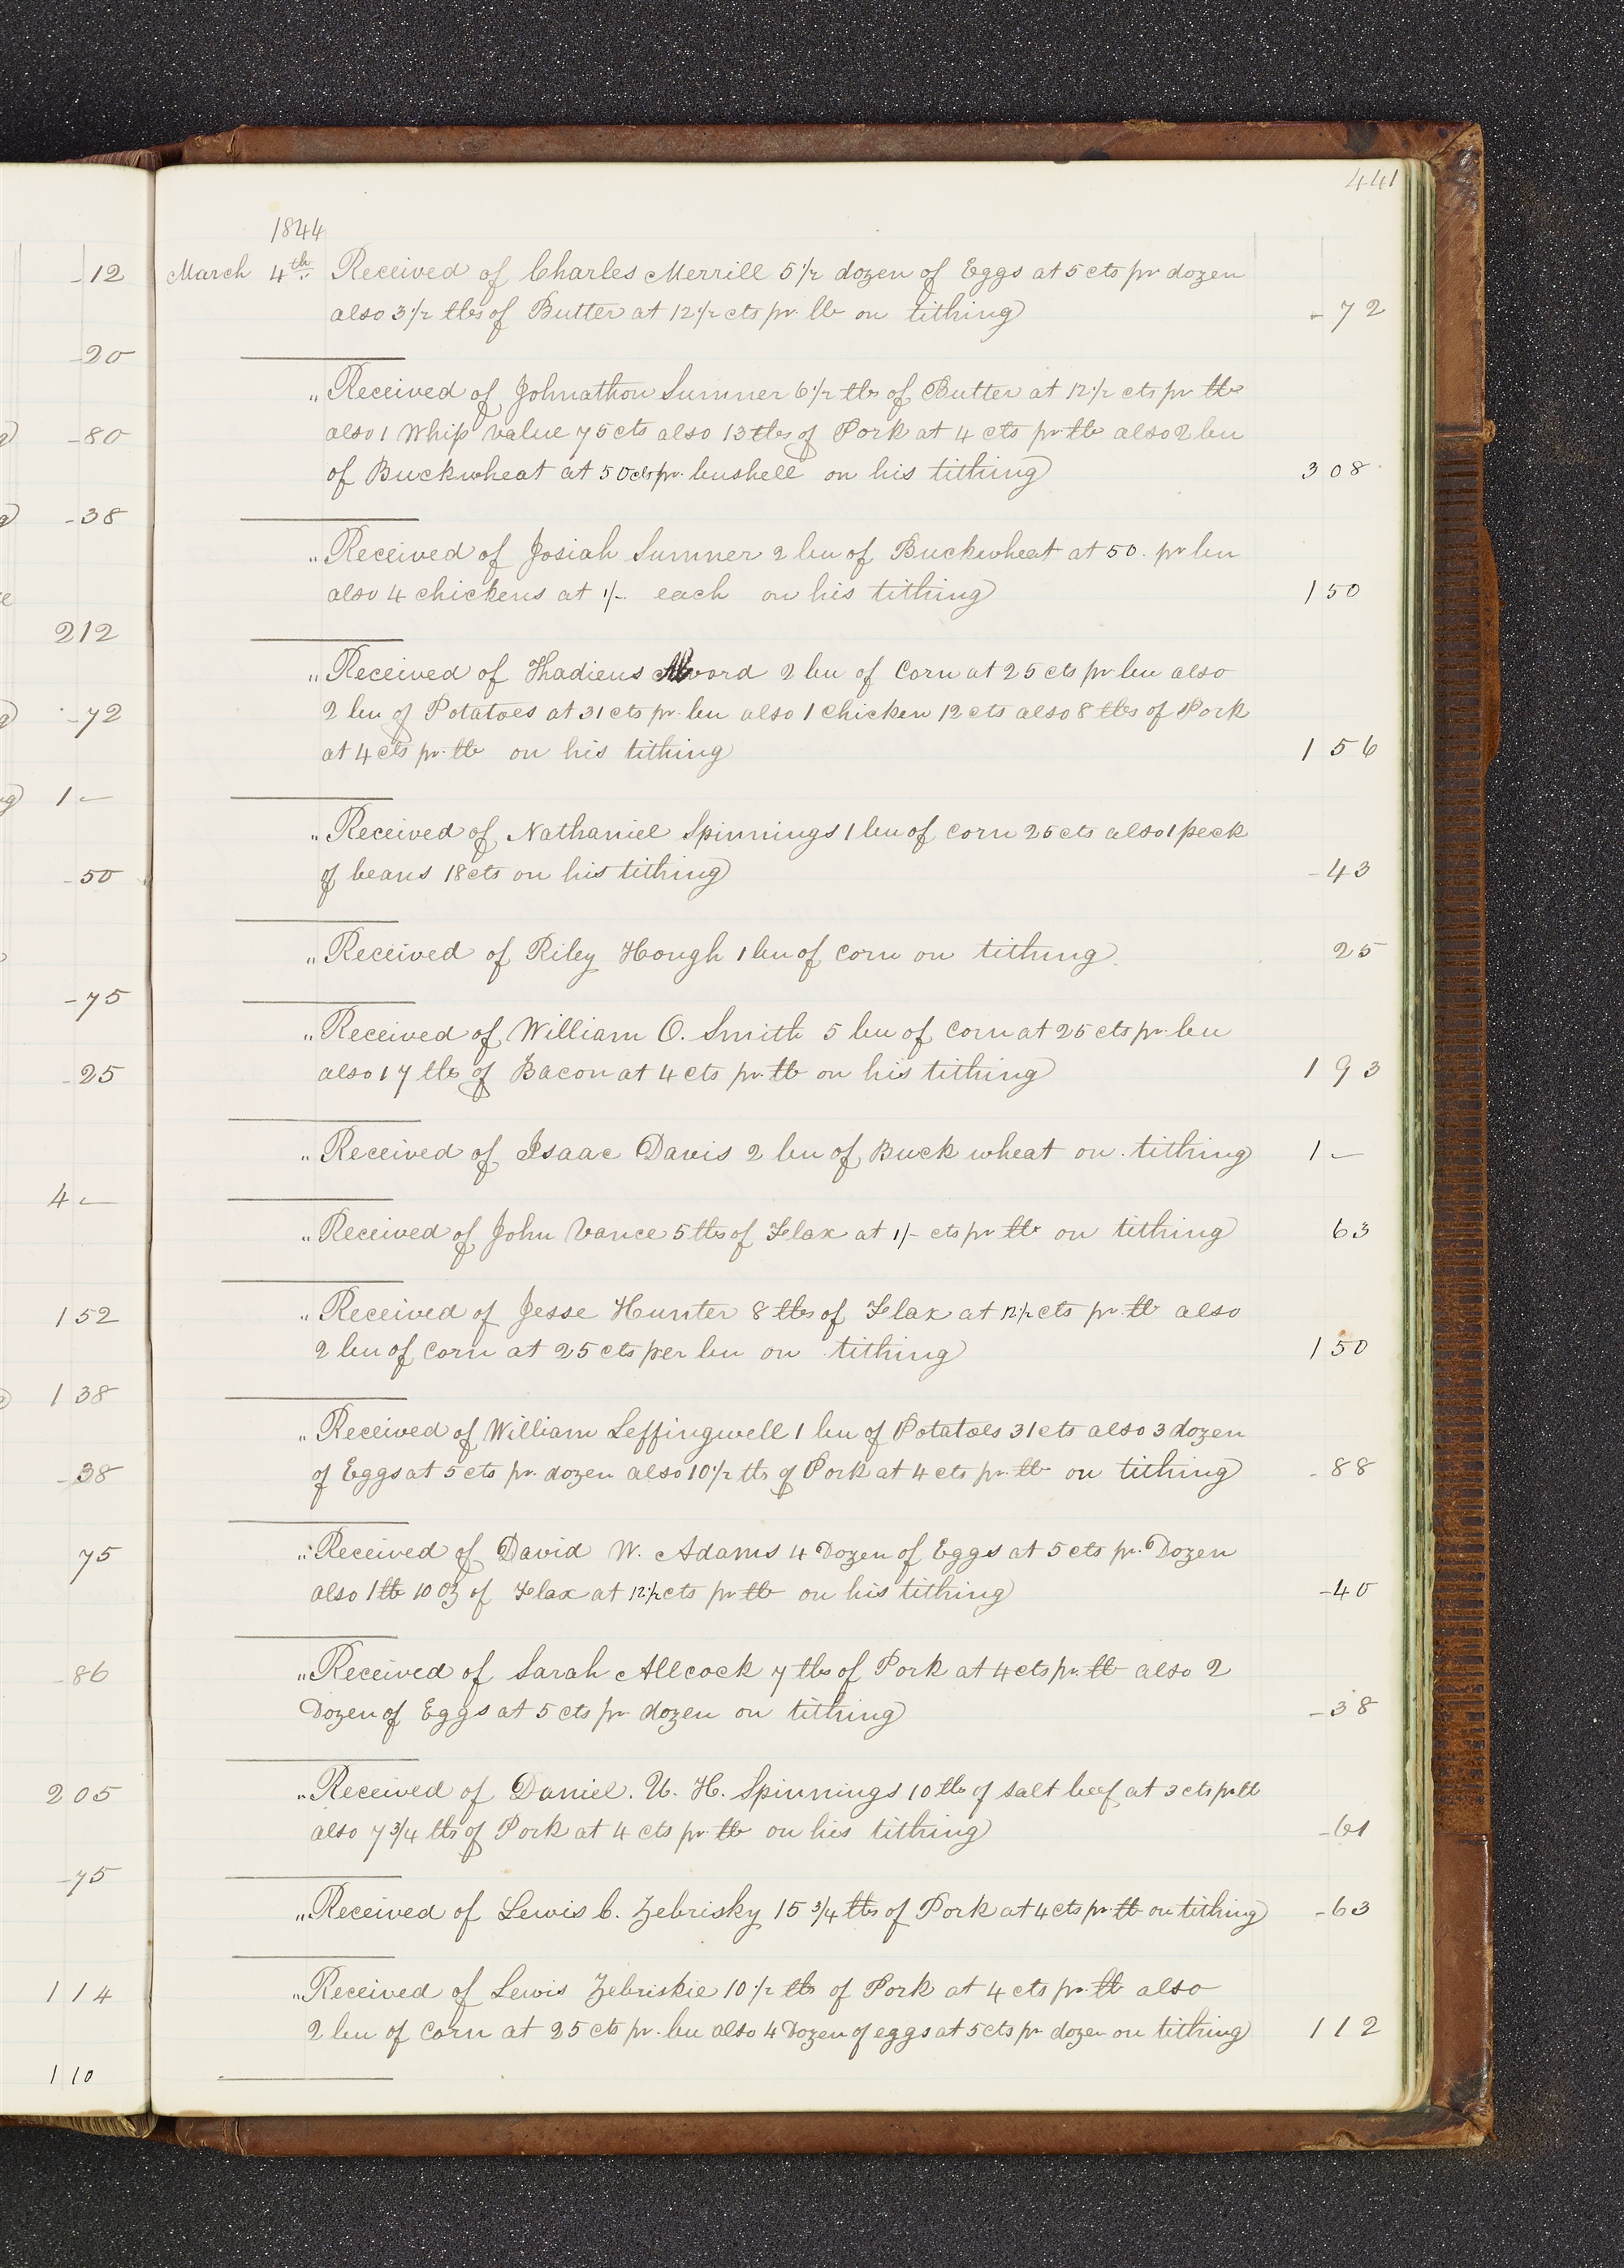 441
1844
March 4th Received of Charles Merrill 5 1/2 dozen of Eggs at 5 cts pr dozen
also 3 1/2 lbs of Butter at 12 1/2 cts pr. lb on tithing - 72
" Received of Johnathon Sumner 6 1/2 lbs of Butter at 12 1/2 cts pr lb
also 1 Whip value 75 cts also 13 lbs of Pork at 4 cts pr lb also 2 bu
of Buckwheat at 50 cts pr. bushell on his tithing 3 08
" Received of Josiah Sumner 2 bu of Buckwheat at 50. pr bu
also 4 chickens at 1/- each on his tithing 1 50
" Received of Thadieus Alvord 2 bu of Corn at 25 cts pr bu also
2 bu of Potatoes at 31 cts pr. bu also 1 Chicken 12 cts also 8 lbs of Pork
at 4 cts pr. lb on his tithing 1 56
" Received of Nathaniel Spinnings 1 bu of corn 25 cts also 1 peck
of beans 18 cts on his tithing - 43
" Received of Riley Hough 1 bu of corn on tithing. 25
" Received of William O. Smith 5 bu of Corn at 25 cts pr. bu
also 17 lbs of Bacon at 4 cts pr. lb on his tithing 1 93
" Received of Isaac Davis 2 bu of Buck wheat on tithing 1 -
" Received of John Vance 5 lbs of Flax at 1/- cts pr lb on tithing 63
" Received of Jesse Hunter 8 lbs of Flax at 12 1/2 cts pr. lb also
2 bu of Corn at 25 cts per bu on tithing 1 50
" Received of William Leffingwell 1 bu of Potatoes 31 cts also 3 dozen
of Eggs at 5 cts pr. dozen also 10 1/2 lbs of Pork at 4 cts pr. lb on tithing - 88
" Received of David W. Adams 4 Dozen of Eggs at 5 cts pr. Dozen
also 1 lb 10 oz of Flax at 12 1/2 cts pr lb on his tithing - 40
" Received of Sarah Allcock 7 lbs of Pork at 4 cts pr. lb also 2
Dozen of Eggs at 5 cts pr dozen on tithing - 38
" Received of Daniel. U. H. Spinnings 10 lbs of salt beef at 3 cts pr lb
also 7 3/4 lbs of Pork at 4 cts pr lb on his tithing - 61
" Received of Lewis C. Zebrisky 15 3/4 lbs of Pork at 4 cts pr. lb on tithing - 63
" Received of Lewis Zebriskie 10 1/2 lbs of Pork at 4 cts pr. lb also
2 bu of Corn at 25 cts pr. bu also 4 Dozen of eggs at 5 cts pr dozen on tithing 1 12
- 12
- 20
- 80
- 38
2 12
- 72
1 -
- 50
- 75
- 25
4 -
1 52
1 38
- 38
75
- 86
2 05
- 75
1 14
1 10